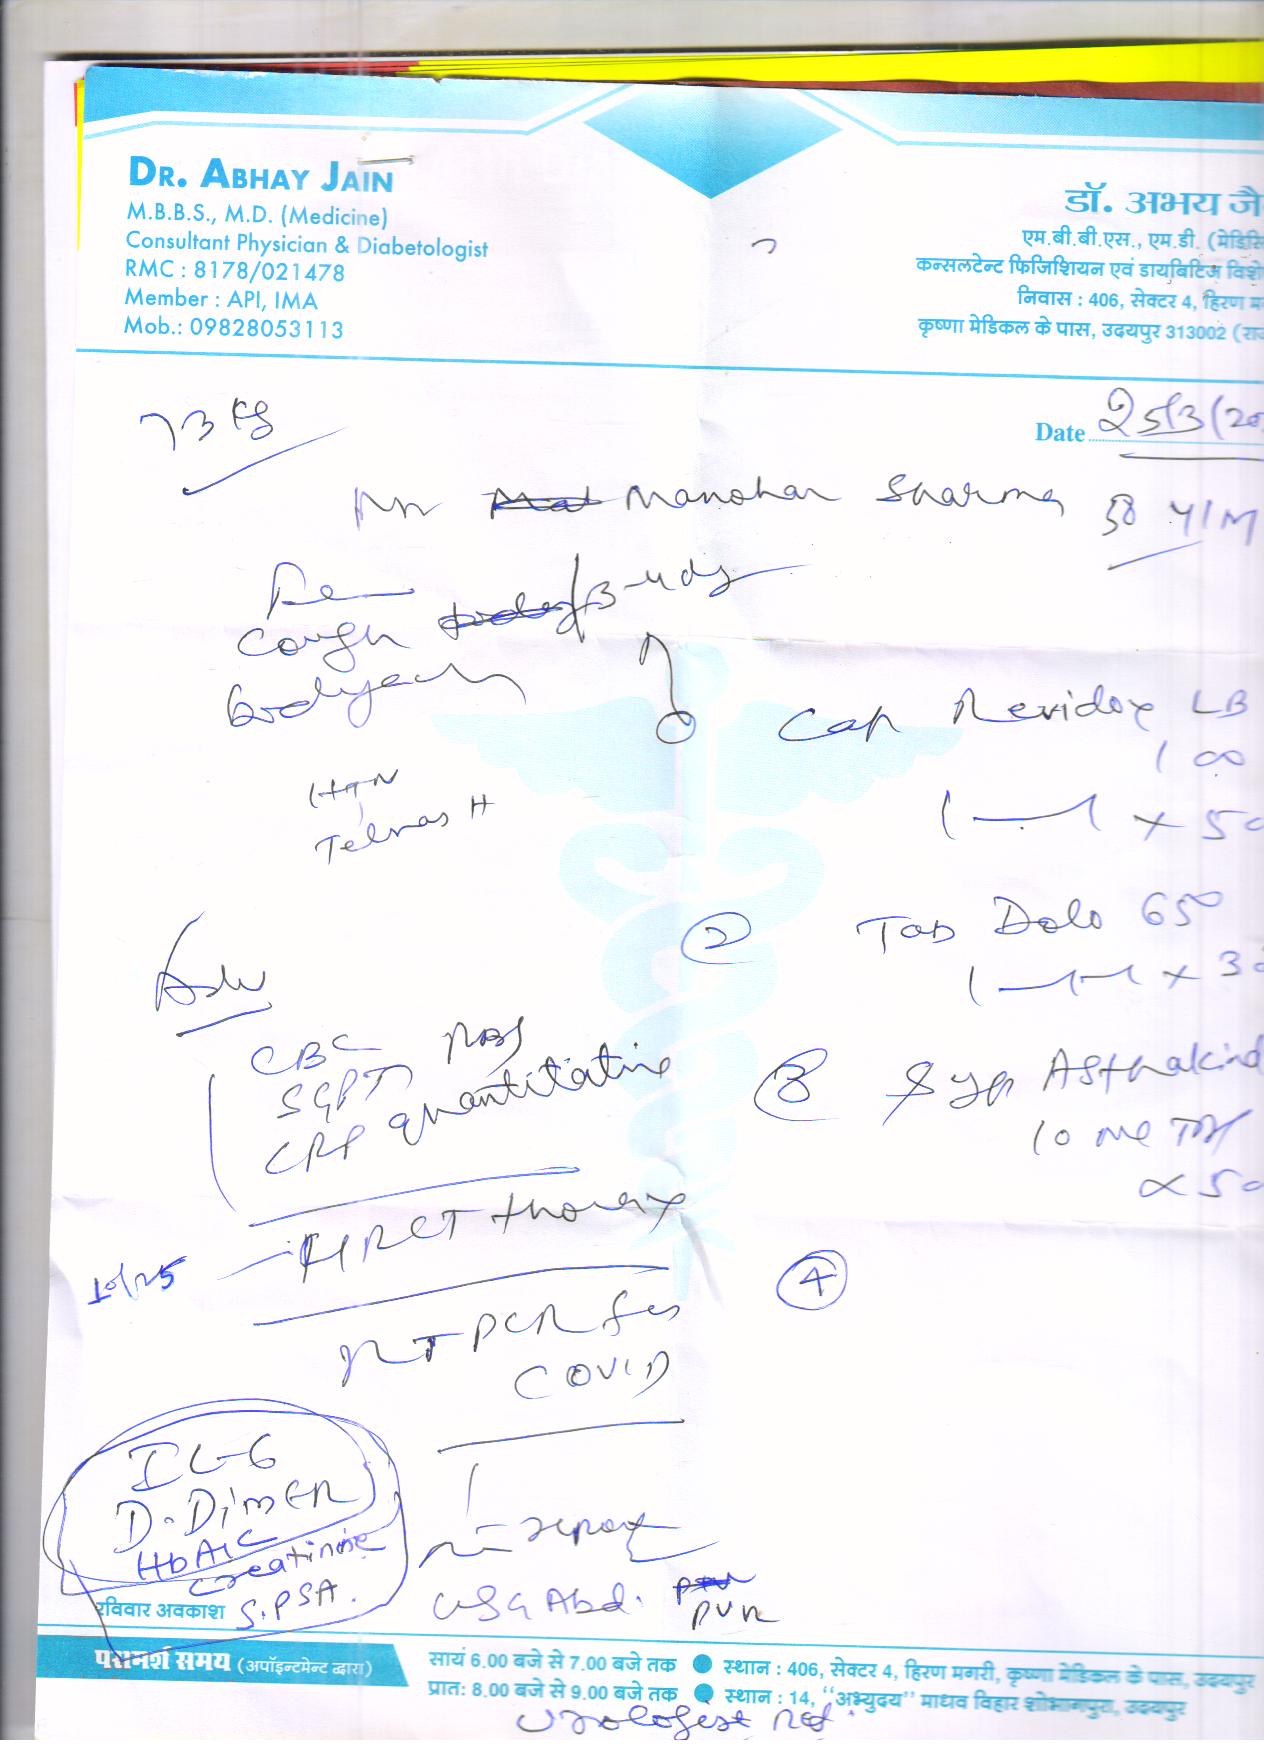 DR. ABHAY JAIN
M.B.B.S., M.D. (Medicine)
Consultant Physician & Diabetologist
RMC : 8178/021478
Member : API, IMA
Mob.: 09828053113
डॉ. अभय जै
एम.बी.बी.एस., एम.डी. (मेडिसि
कन्सलटेन्ट फिजिशियन एवं डायबिटिज विशे
निवास : 406, सेक्टर 4, हिरण म
कृष्णा मेडिकल के पास, उदयपुर 313002 (राज
73 Kg
Date 25/3/20
Manohar Sharma 58 Y/M
Cough 3-4 ds
bodyach
HTN
Telmas H
Cap Revidox LB
100
1 — 1 x 5
Adv
2 Tab Dolo 650
1 — 1 — 1 x 3
CBC RBS
SGPT
CRP quantitative
3 Syp Asthakind
10 ml TDS
x 5
HRCT thorax
4
RTPCR for
COVID
IL-6
D-DimER
HbA1C
Creatinine
S.PSA.
USG Abd. PVR
रविवार अवकाश
परामर्श समय (अपॉइन्टमेन्ट द्वारा)
सायं 6.00 बजे से 7.00 बजे तक ● स्थान : 406, सेक्टर 4, हिरण मगरी, कृष्णा मेडिकल के पास, उदयपुर
प्रात: 8.00 बजे से 9.00 बजे तक ● स्थान : 14, "अभ्युदय" माधव विहार शोभागपुरा, उदयपुर
Urologist Ref.